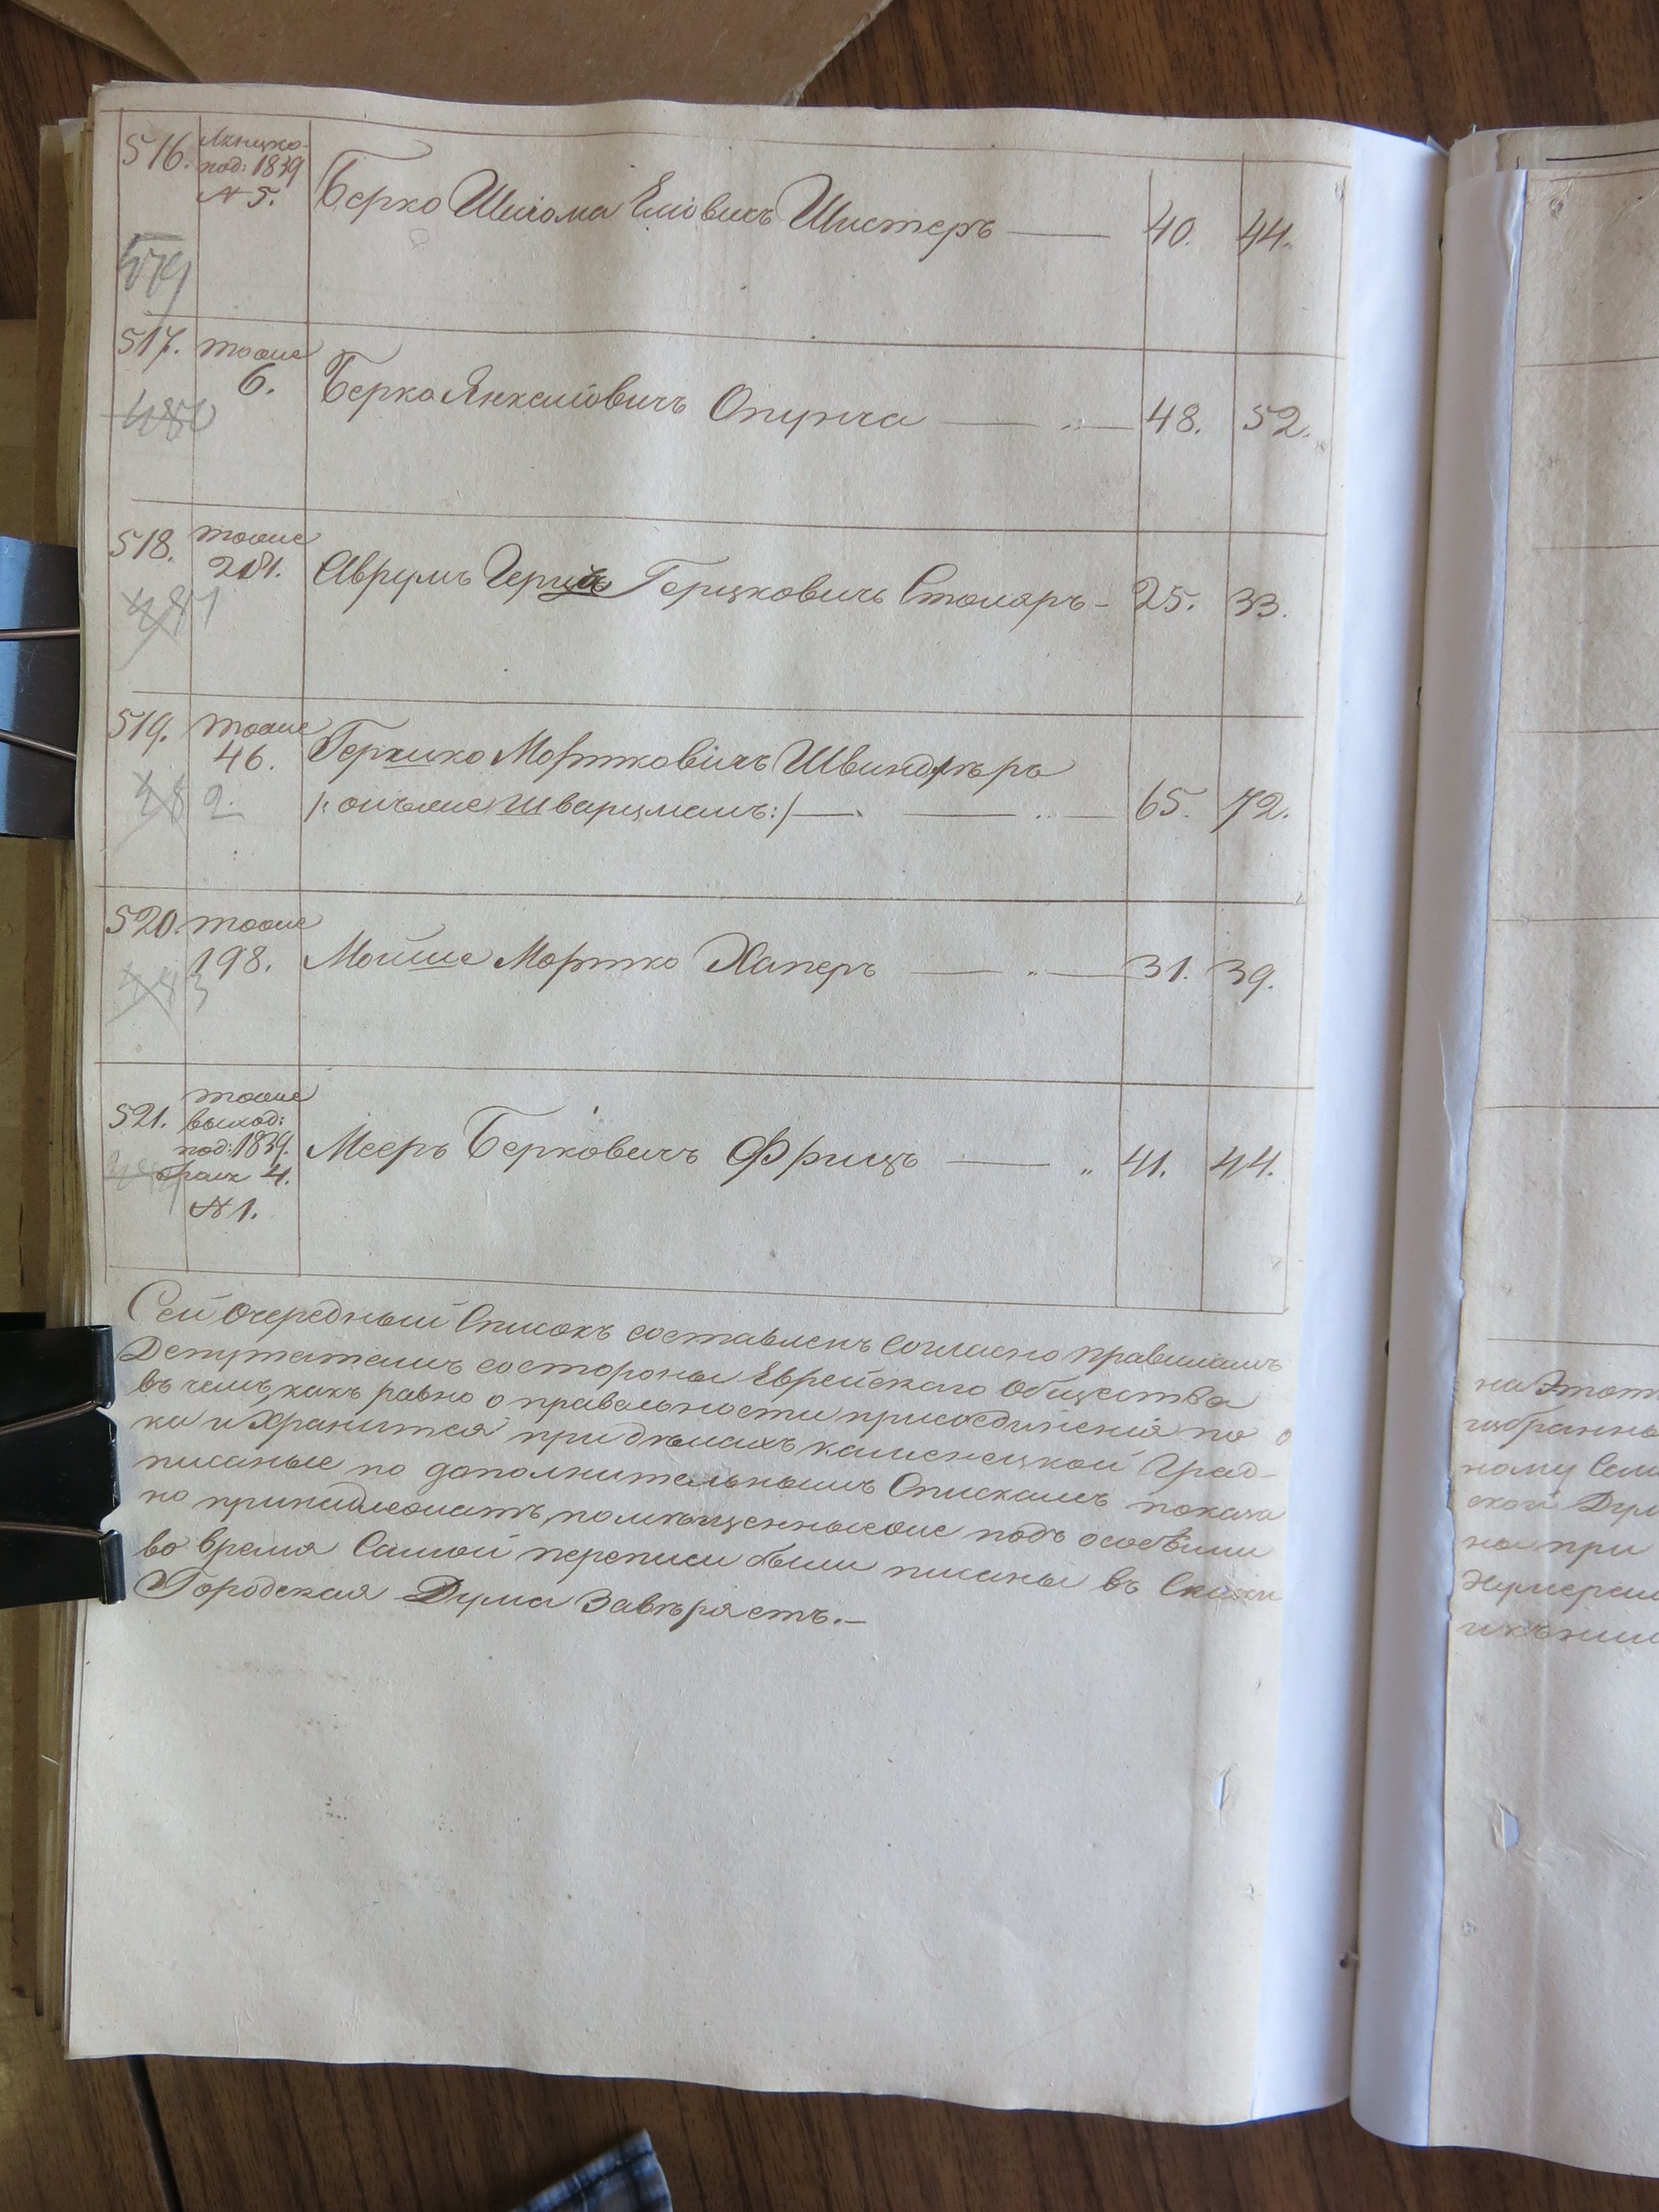 516. под: 1839
№ 5. Берко Шлiома Елiовичъ Шистеръ 40. 44.
479
517. тоже
6. Берко Янкелiовичъ Опунча 48. 52.
480
518. тоже
281. Аврумъ Герцъ Герцковичъ Столяръ 25. 33.
481
519. тоже
46. Гершко Мортковичъ Швиндлѣръ
/: онъже Шварцманъ:/ 65. 72.
482.
520. тоже
198. Мойше Мортко Хаперъ 31. 39.
483
521. тоже
выход:
под: 1839. Мееръ Берковичъ Фрицъ 41. 44.
4.
№ 1.
Сей очередный Списокъ составленъ согласно правиламъ
Депутатамъ состороны Еврейскаго Общества
въ чемъ, какъ равно о правельности присоединенiя по
ка и хранится при дѣлахъ каменецкой Град-
писаные по дополнительнымъ Спискамъ показа
но принадлежатъ, помѣщенныеже подъ особыми
во время самой переписи были писаны въ
Городская Дума Завѣряетъ.—
на Этот
избранны
ному Сем
ской Дум
но при
Нумерам